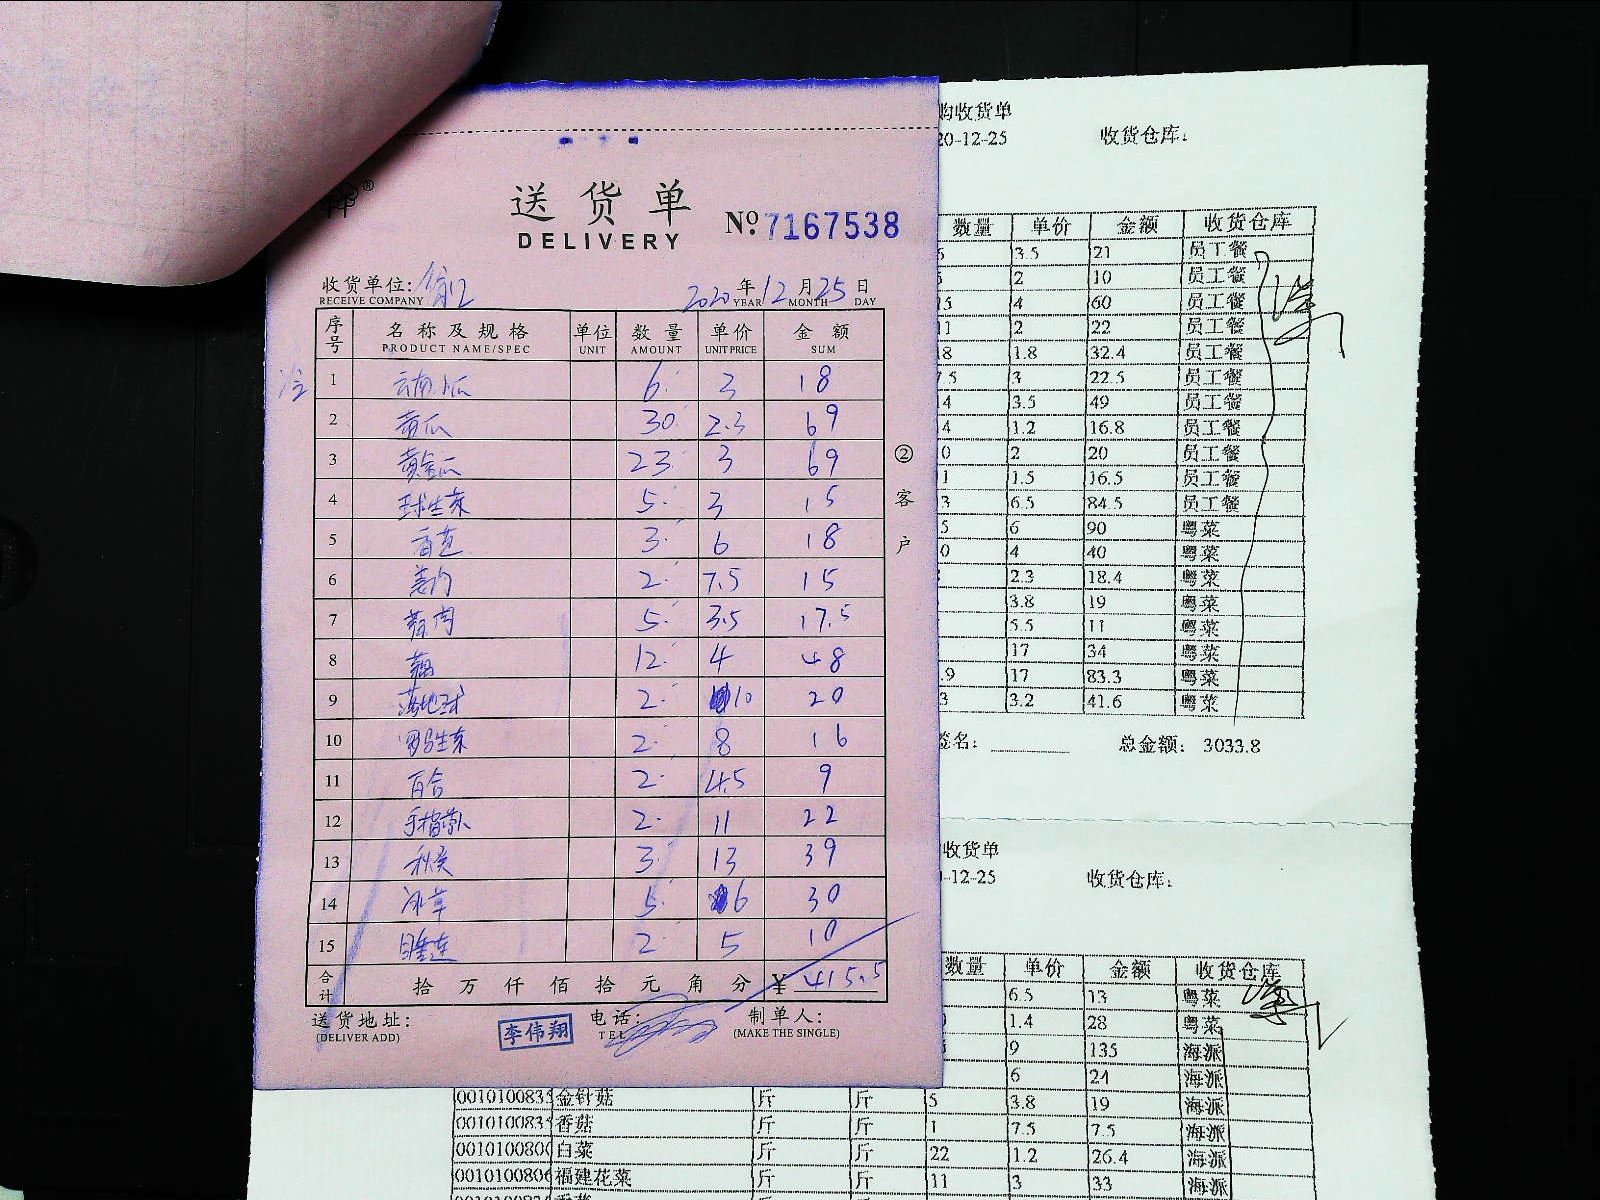 送货单
DELIVERY
No. 7167538
收货单位:
RECEIVE COMPANY
2020年12月25日
YEAR MONTH DAY
序号 名称及规格 单位 数量 单价 金额
PRODUCT NAME/SPEC UNIT AMOUNT UNIT PRICE SUM
冷
1 云南小瓜 6 3 18
2 黄瓜 30 2.3 69
3 黄金瓜 23 3 69
4 球生菜 5 3 15
5 3 6 18
6 2 7.5 15
7 5 3.5 17.5
8 12 4 48
9 2 10 20
10 罗马生菜 2 8 16
11 百合 2 4.5 9
12 2 11 22
13 秋葵 3 13 39
14 冰草 5 6 30
15 2 5 10
合计 拾万仟佰拾元角分 ¥ 415.5
②客户
送货地址:
(DELIVER ADD)
李伟翔
电话:
TEL
制单人:
(MAKE THE SINGLE)
购收货单
20-12-25 收货仓库:
数量 单价 金额 收货仓库
3.5 21 员工餐
2 10 员工餐
4 60 员工餐
2 22 员工餐
8 1.8 32.4 员工餐
7.5 3 22.5 员工餐
4 3.5 49 员工餐
4 1.2 16.8 员工餐
0 2 20 员工餐
1 1.5 16.5 员工餐
3 6.5 84.5 员工餐
5 6 90 粤菜
0 4 40 粤菜
2.3 18.4 粤菜
3.8 19 粤菜
5.5 11 粤菜
17 34 粤菜
.9 17 83.3 粤菜
3 3.2 41.6 粤菜
签名: 总金额: 3033.8
收货单
-12-25 收货仓库:
数量 单价 金额 收货仓库
6.5 13 粤菜
1.4 28 粤菜
9 135 海派
6 24 海派
金针菇 斤 斤 5 3.8 19 海派
香菇 斤 斤 1 7.5 7.5 海派
白菜 斤 斤 22 1.2 26.4 海派
福建花菜 斤 斤 11 3 33 海派